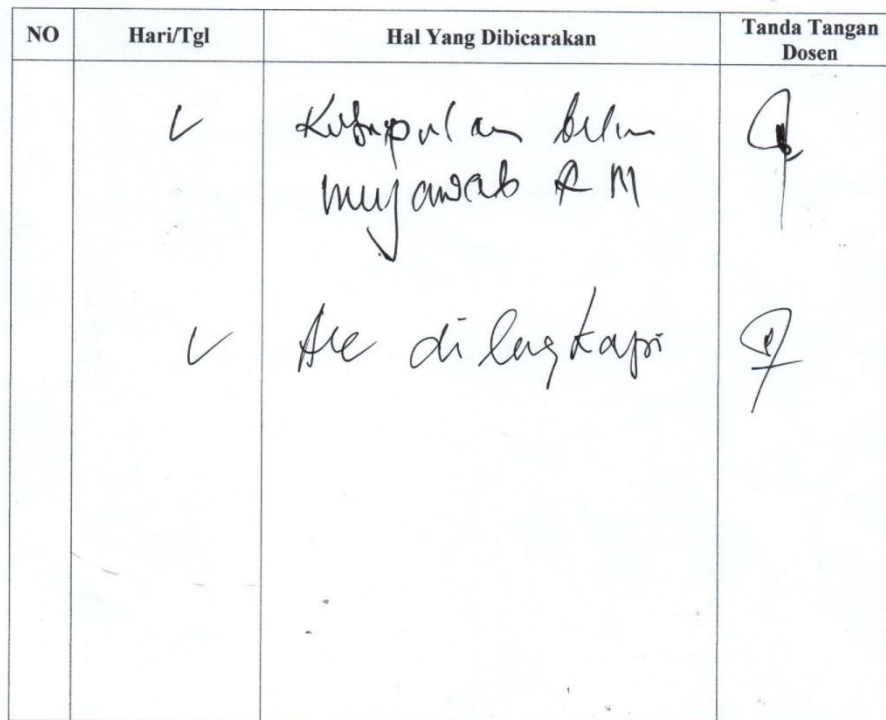 NO Hari/Tgl Hal Yang Dibicarakan Tanda Tangan
Dosen
Kesimpulan belum
menjawab RM
Acc dilengkapi